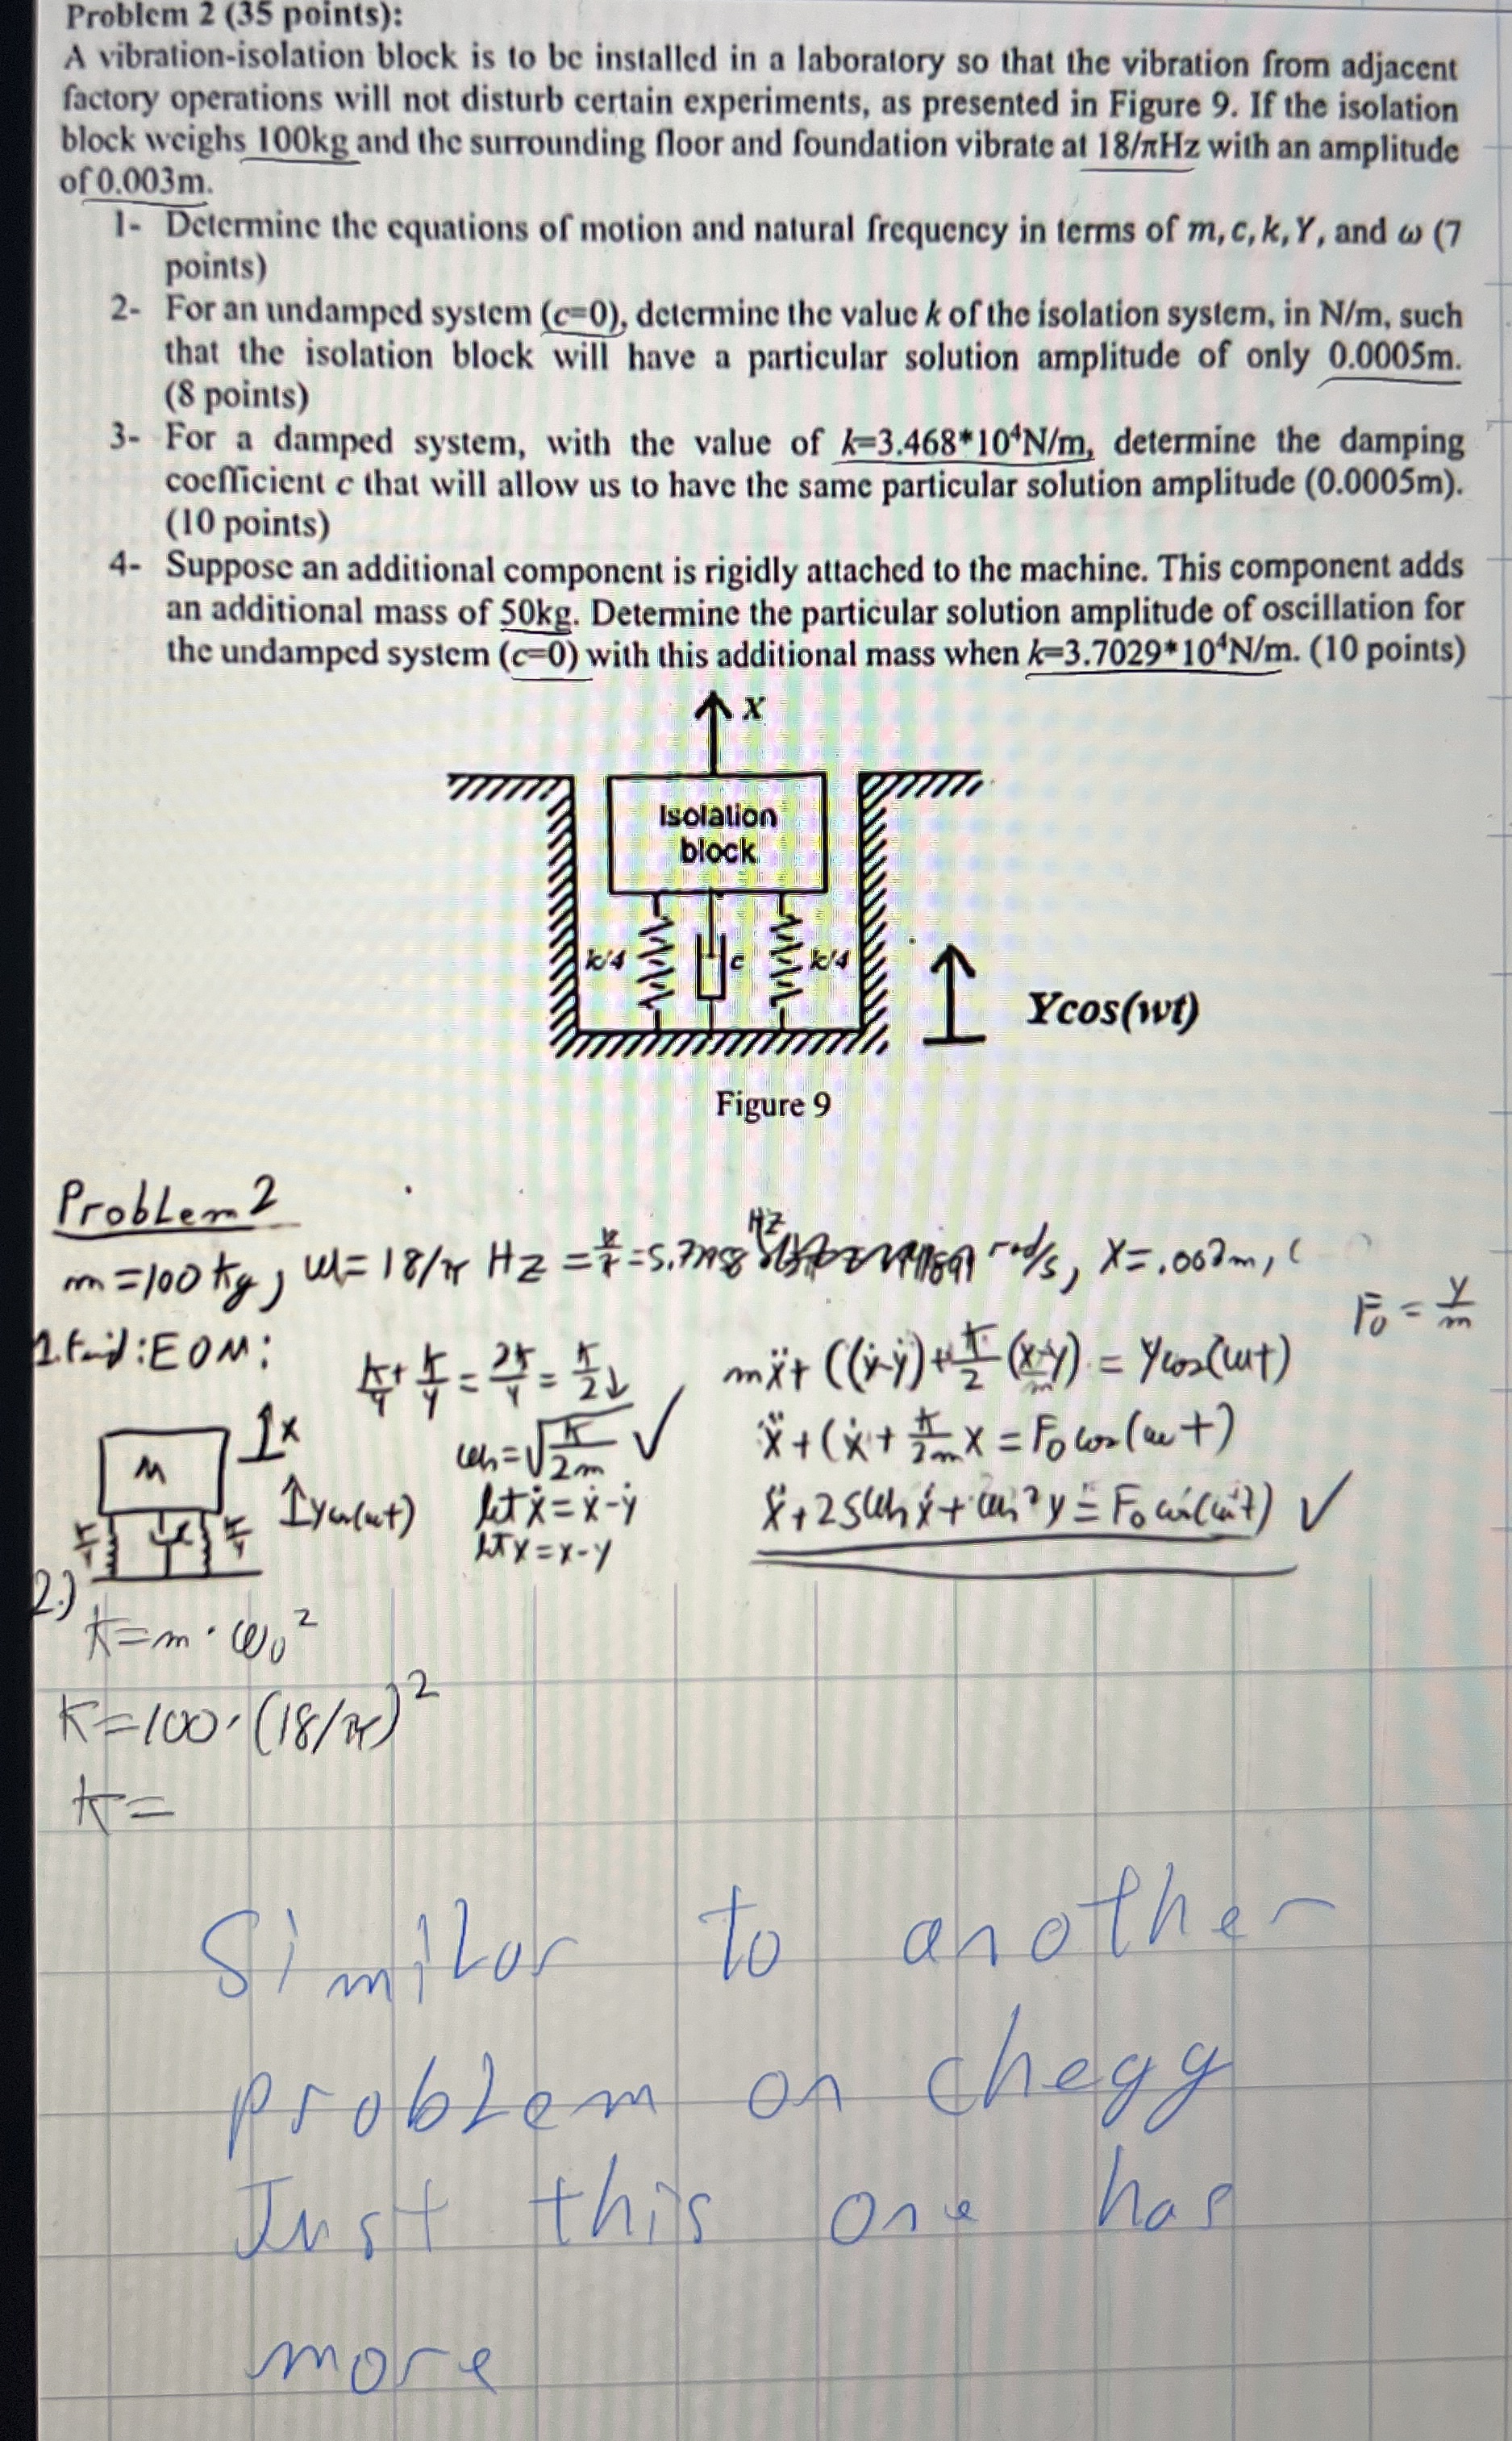 Problem 2 (35 points):
A vibration-isolation block is to be installed in a laboratory so that the vibration from adjacent
factory operations will not disturb certain experiments, as presented in Figure 9. If the isolation
block weighs 100kg and the surrounding floor and foundation vibrate at 18/πHz with an amplitude
of 0.003m.
1- Determine the equations of motion and natural frequency in terms of m, c, k, Y, and ω (7
points)
2- For an undamped system (c=0), determine the value k of the isolation system, in N/m, such
that the isolation block will have a particular solution amplitude of only 0.0005m.
(8 points)
3- For a damped system, with the value of k=3.468*10⁴N/m, determine the damping
coefficient c that will allow us to have the same particular solution amplitude (0.0005m).
(10 points)
4- Suppose an additional component is rigidly attached to the machine. This component adds
an additional mass of 50kg. Determine the particular solution amplitude of oscillation for
the undamped system (c=0) with this additional mass when k=3.7029*10⁴N/m. (10 points)
x
Isolation
block
k/4 c k/4
Ycos(wt)
Figure 9
Problem 2
m=100kg, ω=18/π Hz = rad/s,
F₀ = y/m
1. Find: EOM:
k/4 + k/4 = 2k/4 = k/2 ↓
mẍ + c(ẋ-ẏ) + k/2 (x-y) = Ycos(ωt)
ωn = √k/2m ✓
ẍ + cẋ + k/2m x = F₀ cos(ωt)
M x
ycos(ωt)
let ẋ = ẋ-ẏ
let x = x-y
k/4 c k/4
2.)
k=m·ω₀²
K=100·(18/π)²
k=
Similar to another
problem on chegg
Just this one has
more